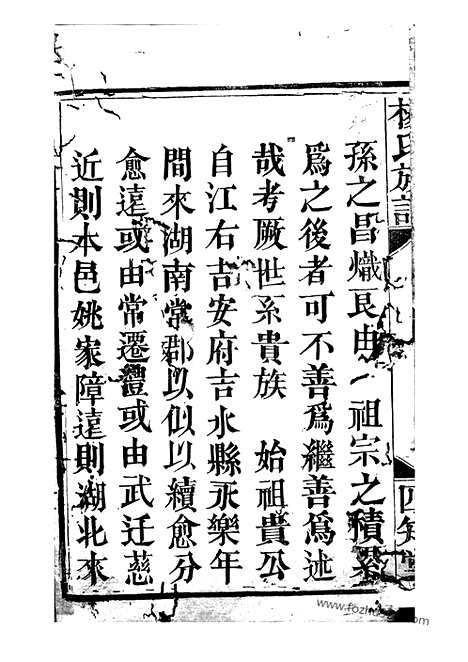 楊氏族譜
四知堂
孫之昌熾良由 祖宗之積累
爲之後者可不善爲繼善爲述
哉考厥世系貴族 始祖貴公
自江右吉安府吉水縣永樂年
間來湖南常郡以似以續愈分
愈遠或由常遷澧或由武迁慈
近則本邑姚家障遠則湖北來